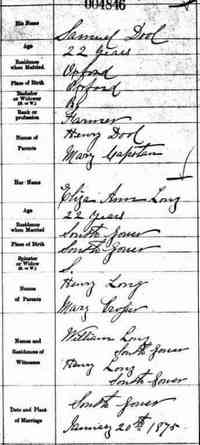 004846
His Name
Samuel Dool
Age
22 years
Residence when Married
Oxford
Place of Birth
Oxford
Bachelor or Widower (B. or W.)
B.
Rank or profession
Farmer
Names of Parents
Henry Dool
Mary
Her Name
Eliza Ann Long
Age
22 Years
Residence when Married
South Gower
Place of Birth
South Gower
Spinster or Widow (S. or W.)
S.
Names of Parents
Henry Long
Mary Cooper
Names and Residences of Witnesses
William Long
South Gower
Henry Long
South Gower
Date and Place of Marriage
South Gower
January 20th 1875